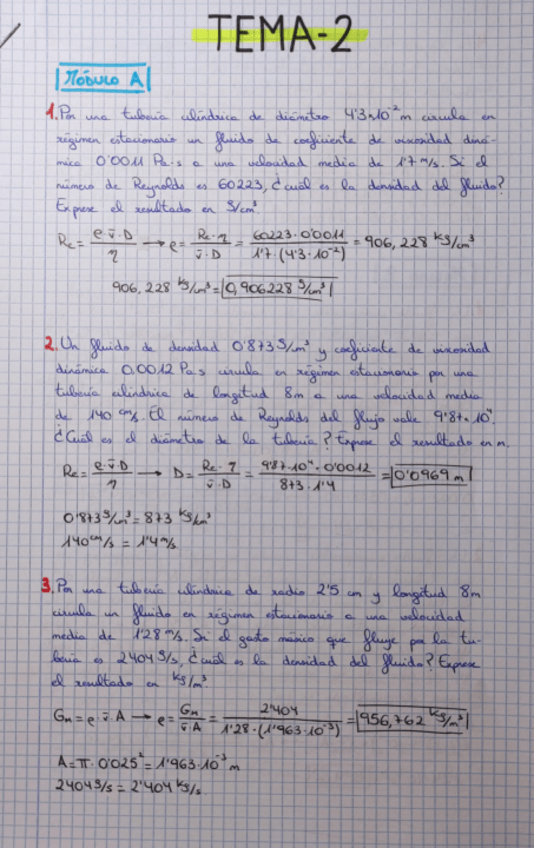 TEMA-2
Módulo A
1. Por una tubería cilíndrica de diámetro 4'3·10⁻² m circula en
régimen estacionario un fluido de coeficiente de viscosidad diná-
mica 0'0011 Pa·s a una velocidad media de 1'7 m/s. Si el
número de Reynolds es 60223, ¿cuál es la densidad del fluido?
Exprese el resultado en g/cm³.
Re = ρ·v̄·D / η → ρ = Re·η / v̄·D = 60223·0'0011 / 1'7·(4'3·10⁻²) = 906,228 kg/cm³
906,228 kg/cm³ = 0,906228 g/cm³
2. Un fluido de densidad 0'873 g/cm³ y coeficiente de viscosidad
dinámica 0.0012 Pa·s circula en régimen estacionario por una
tubería cilíndrica de longitud 8m a una velocidad media
de 140 cm/s. El número de Reynolds del flujo vale 9'87·10⁴.
¿Cuál es el diámetro de la tubería? Exprese el resultado en m.
Re = ρ·v̄·D / η → D = Re·η / v̄·D = 9'87·10⁴·0'0012 / 873·1'4 = 0'0969 m
0'873 g/cm³ = 873 kg/cm³
140 cm/s = 1'4 m/s
3. Por una tubería cilíndrica de radio 2'5 cm y longitud 8m
circula un fluido en régimen estacionario a una velocidad
media de 1'28 m/s. Si el gasto másico que fluye por la tu-
bería es 2404 g/s, ¿cuál es la densidad del fluido? Exprese
el resultado en kg/m³.
Gm = ρ·v̄·A → ρ = Gm / v̄·A = 2'404 / 1'28·(1'963·10⁻³) = 956,762 kg/m³
A = π·0'025² = 1'963·10⁻³ m
2404 g/s = 2'404 kg/s